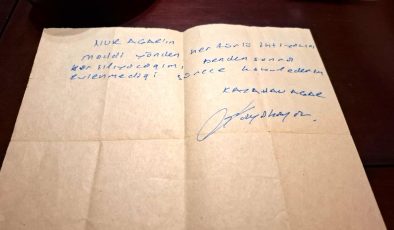 NUR AGAR'ın
maddi yönden her türlü ihtiyacını
karşılıyacağımı, benden sonra
evlenmediği sürece kabul ederim
KAYAHAN AÇAR
Kayahan